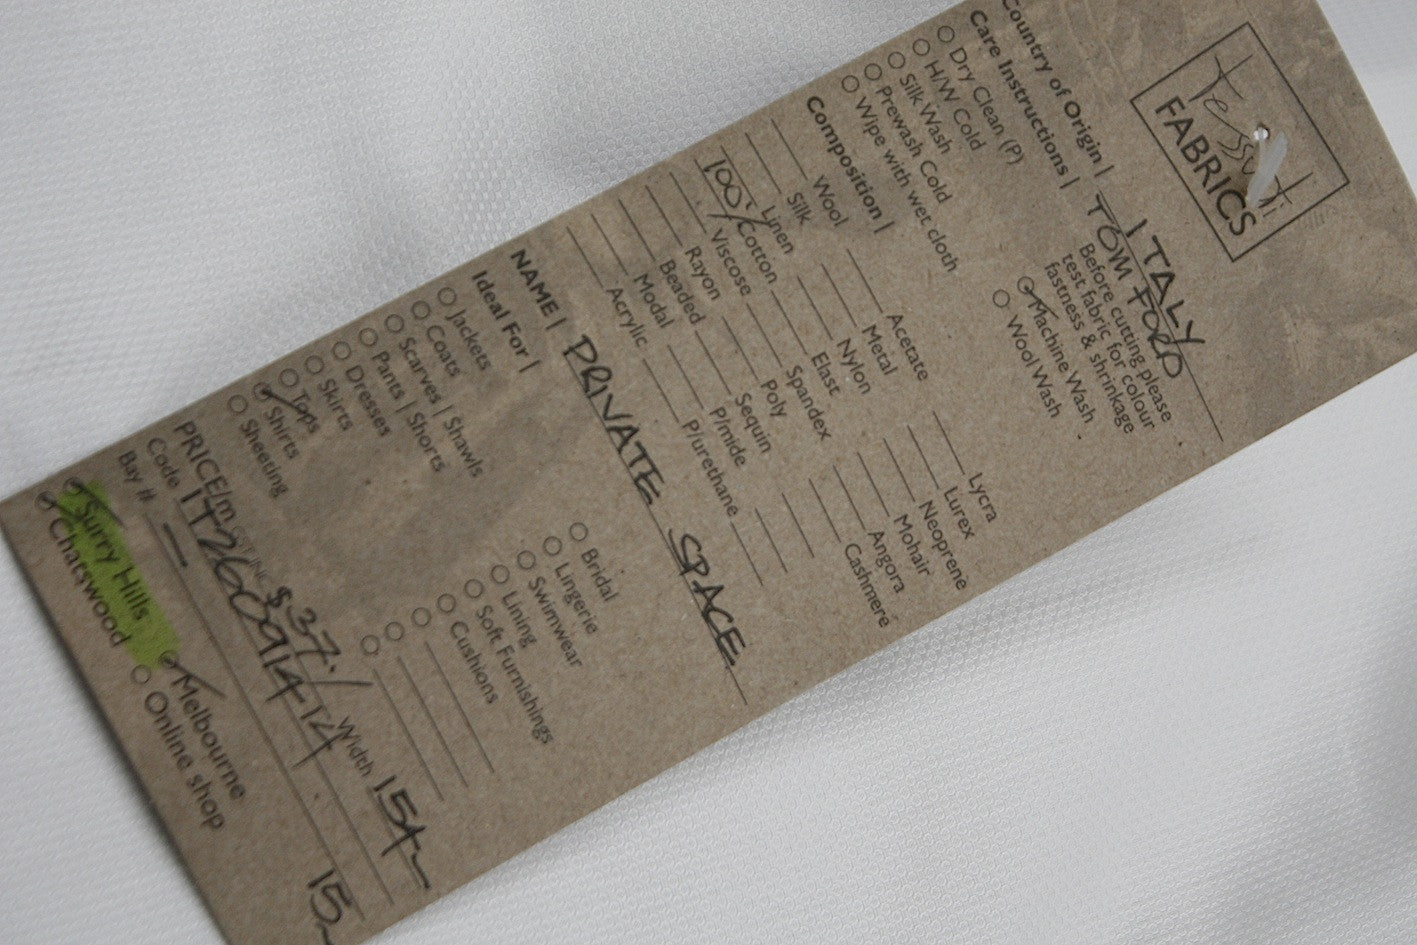 Tessuti
FABRICS
Country of Origin | ITALY
Care Instructions | TOM FORD
Dry Clean (P)
H/W Cold
Silk Wash
Prewash Cold
Wipe with wet cloth
Before cutting please
test fabric for colour
fastness & shrinkage
Machine Wash
Wool Wash
Composition |
Wool
Silk
Linen
100% Cotton
Viscose
Rayon
Beaded
Modal
Acrylic
Acetate
Metal
Nylon
Elast
Spandex
Poly
Sequin
P/mide
P/urethane
Lycra
Lurex
Neoprene
Mohair
Angora
Cashmere
NAME | PRIVATE SPACE
Ideal For |
Jackets
Coats
Scarves | Shawls
Pants | Shorts
Dresses
Skirts
Tops
Shirts
Sheeting
Bridal
Lingerie
Swimwear
Lining
Soft Furnishings
Cushions
PRICE/m $37.- Width 154
Code IT260914-T24
Bay # — 15
Surry Hills Melbourne
Chatswood Online shop